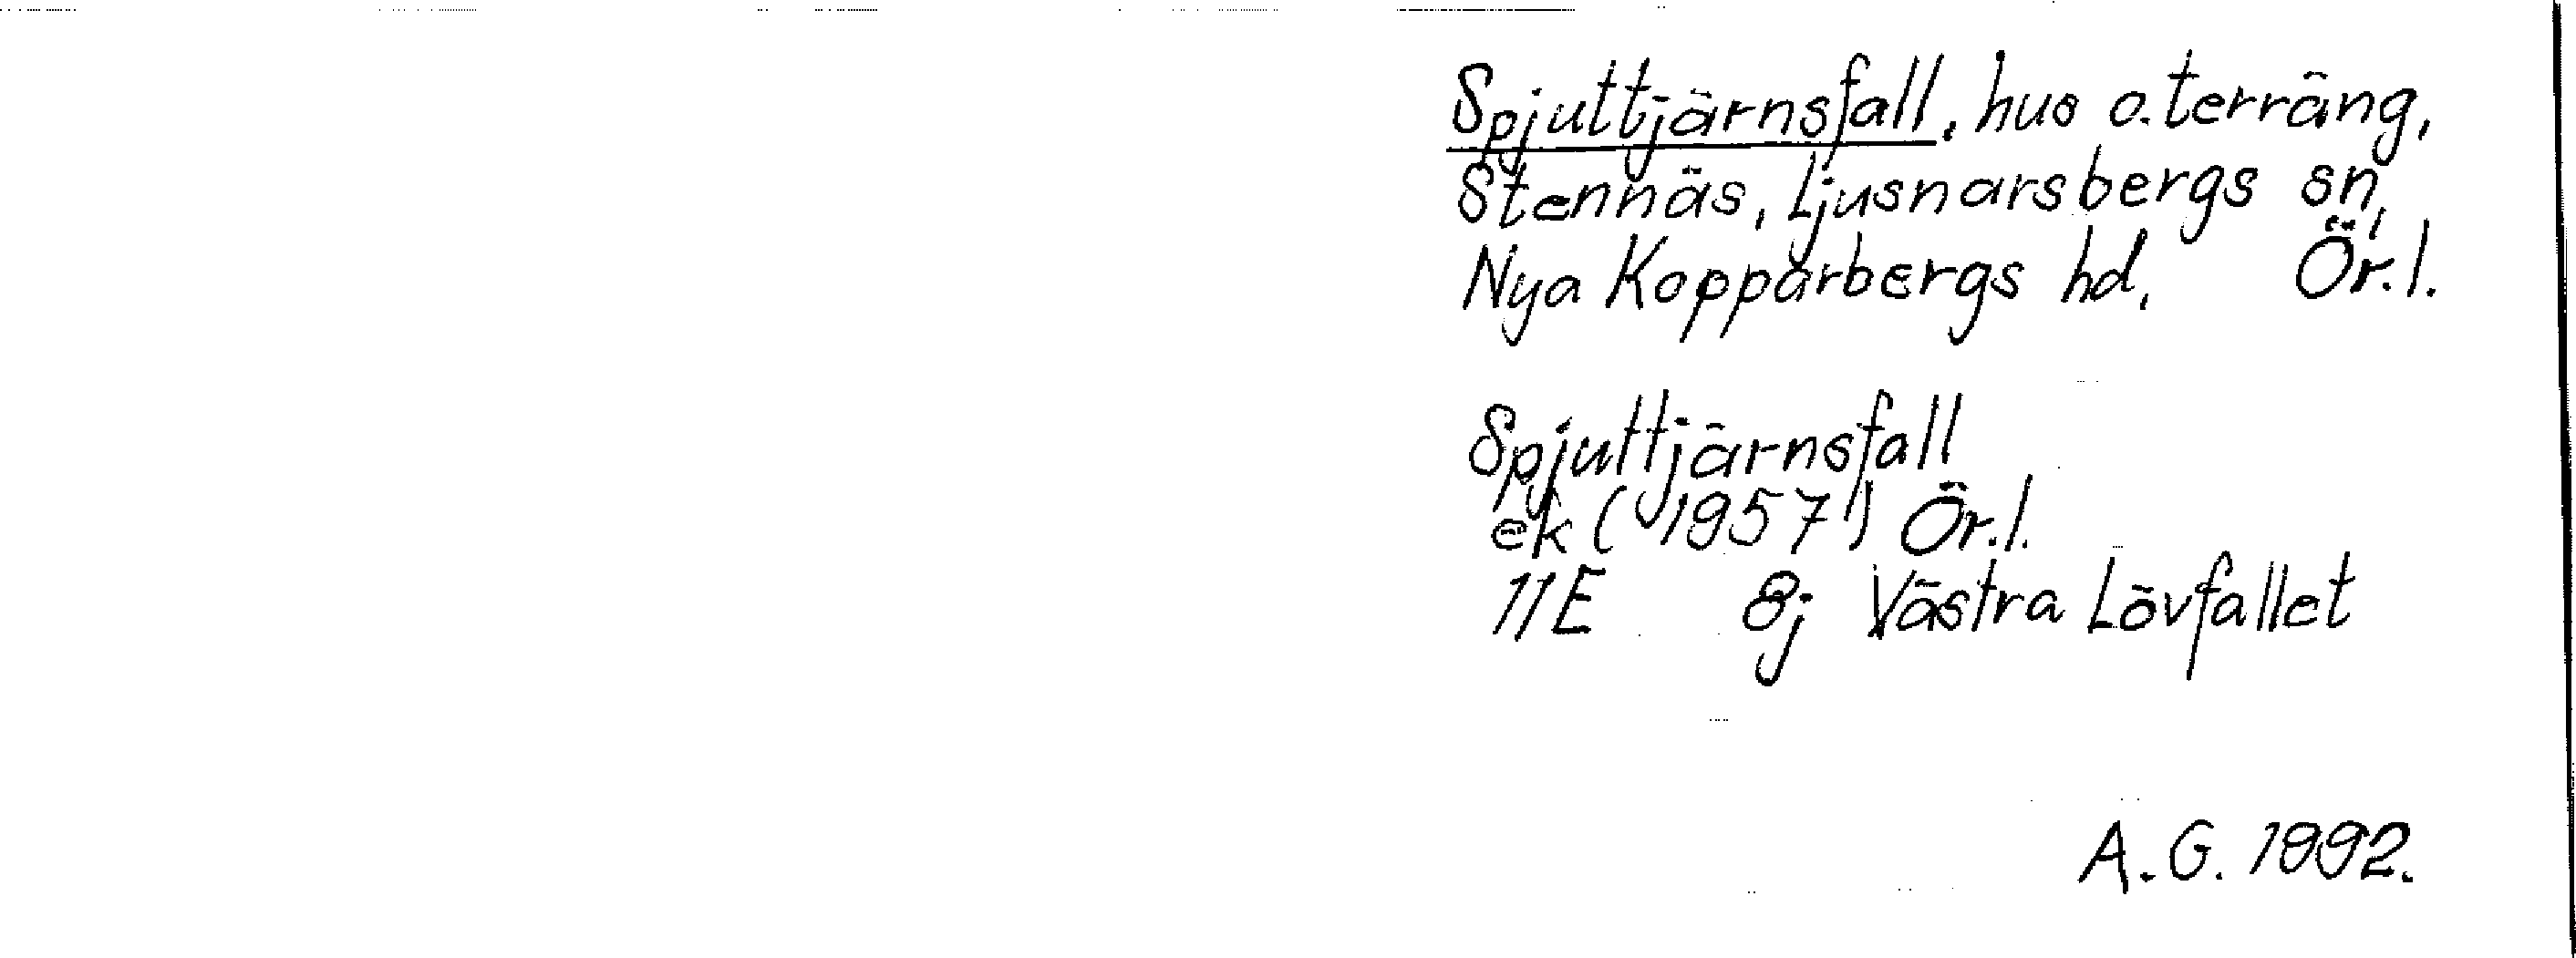 Spjuttjärnsfall, hus o. terräng,
Stennäs, Ljusnarsbergs sn,
Nya Kopparbergs hd, Ör.l.
Spjuttjärnsfall
ek (1957) Ör.l.
11E 8j Västra Lövfallet
A.G. 1992.